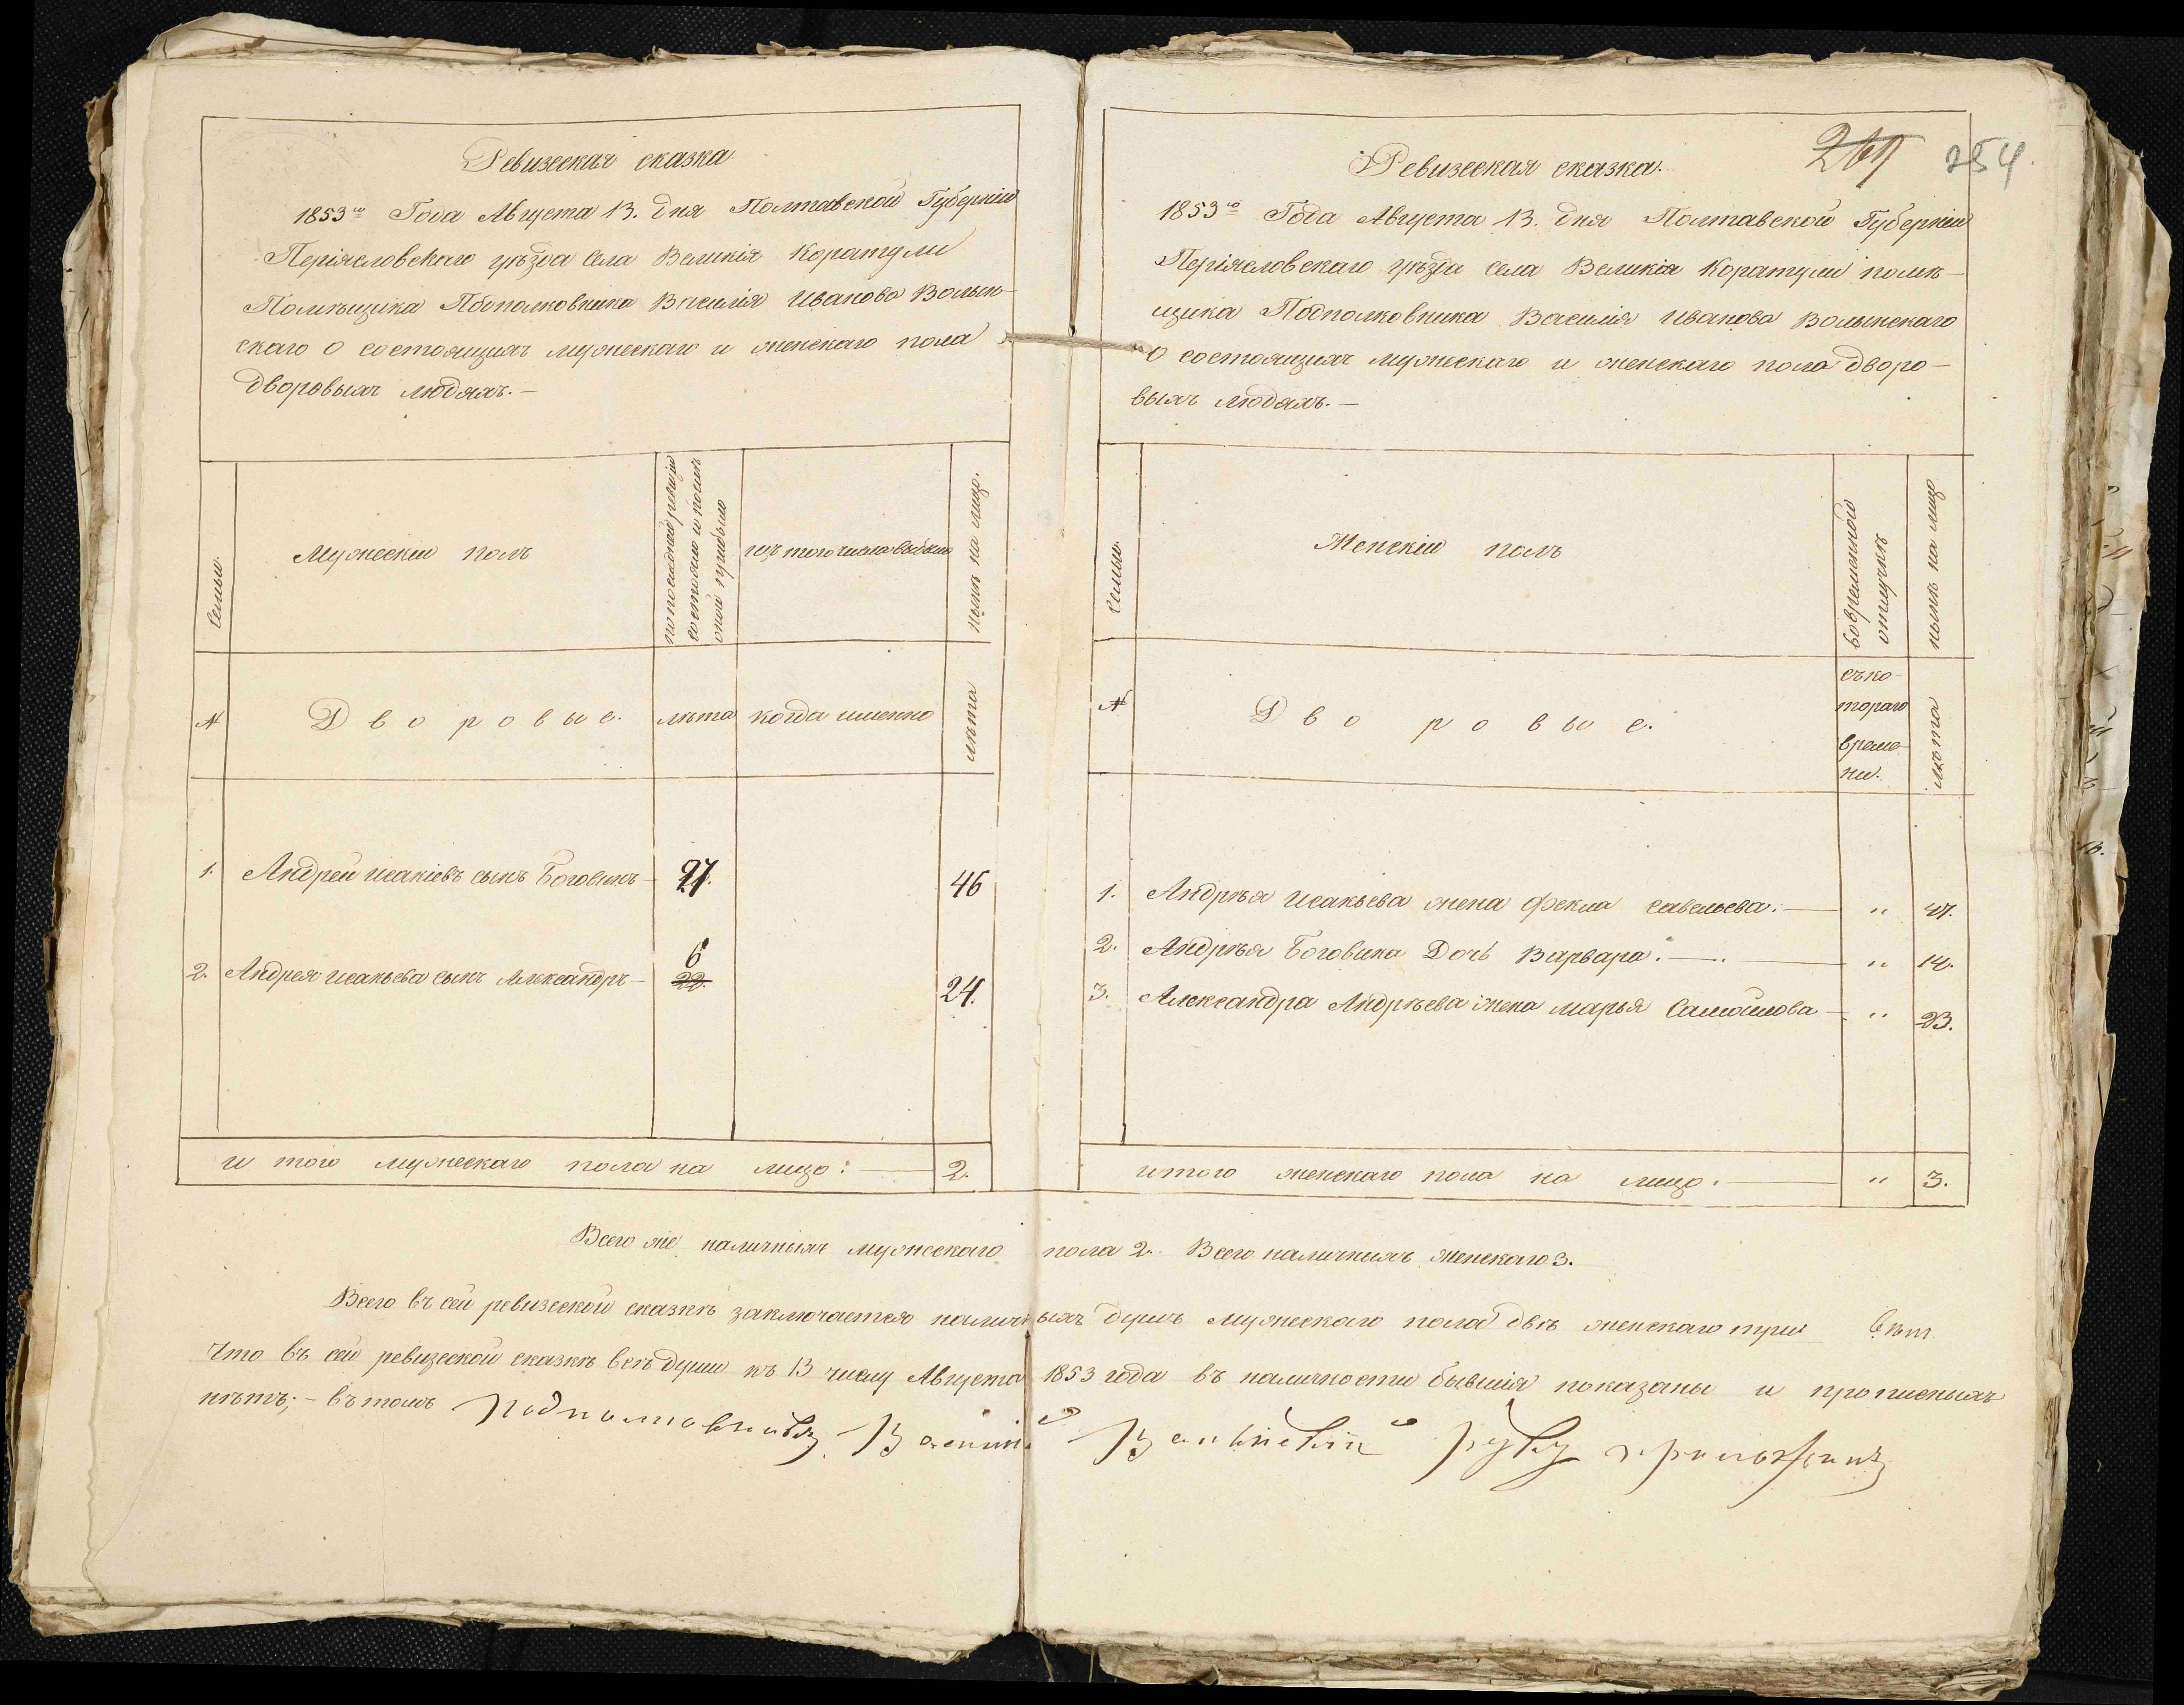 Ревизская сказка.
1853го Года Августа 13. дня Полтавской Губерніи
Періясловскаго уѣзда села Великія Коратули
Помѣщика Подполковника Василія Иванова Волын-
скаго о состоящихъ мужескаго и женскаго пола
дворовыхъ людяхъ.—
Семьи.
Мужескій полъ
по последней ревизіи
состояло и послѣ
оной прибыло
изъ того числа выбыло
нынѣ на лицо.
№
Дворовые.
лѣта
когда именно
лѣта
1. Андрей Исакіевъ сынъ Боговинъ— 27. 46
6
2. Андрея Исакьева сынъ Александръ— 22. 24.
и того мужескаго пола на лицо: — 2.
269 254.
Ревизская сказка.
1853го Года Августа 13. дня Полтавской Губерніи
Періясловскаго уѣзда села Великія Коратули помѣ-
щика Подполковника Василія Иванова Волынскаго
о состоящихъ мужескаго и женскаго пола дворо-
выхъ людяхъ.—
Семьи.
Женскій полъ
во временной
отлучкѣ
нынѣ на лицо
№
Дворовые.
съ ко-
тораго
време-
ни.
лѣта
1. Андрѣя Исакьева жена Фекла Савельева.— " 47.
2. Андрѣя Боговина Дочь Варвара.— " 14.
3. Александра Андрѣева жена Марья Самойлова— " 23.
итого женскаго пола на лицо.— " 3.
Всего же наличныхъ мужескаго пола 2. Всего наличныхъ женскаго 3.
Всего въ сей ревизской сказкѣ заключается наличныхъ душъ мужескаго пола двѣ женскаго три
Что въ сей ревизской сказкѣ всѣ души къ 13 числу Августа 1853 года въ наличности бывшія показаны и прописныхъ
нѣтъ;— въ томъ Подполковникъ Василій Волынскій руку приложилъ